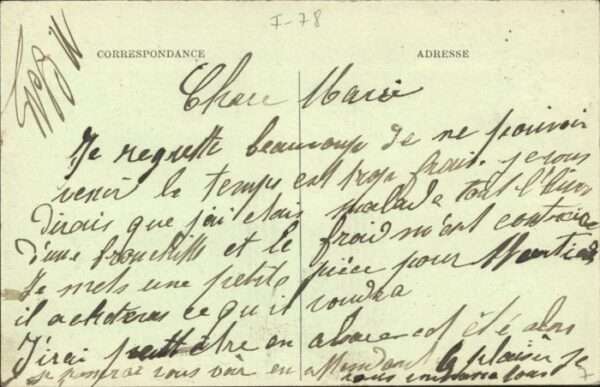 I-78
CORRESPONDANCE
ADRESSE
Chere Marie
Je regrette beaucoup de ne pouvoir
venir le temps est trop frais. je vous
dirais que j'ai etais malade tout l'hiver
d'une bronchitte et le froid m'est contraire
Je mets une petite pièce pour
il acheteras ce qu'il voudra
J'irai peut être en alsace cet été alors
je pourrai vous voir en attendant le plaisir je
vous embrasse tous